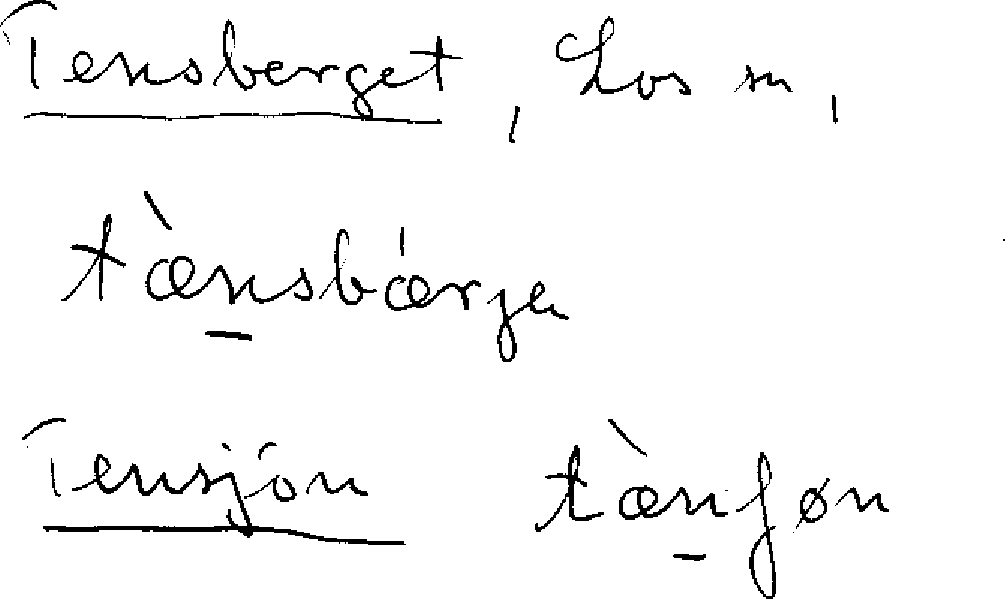 Tensberget, Los sn,
tæ̀nsbǽrje
Tensjön tæ̀nʃøn